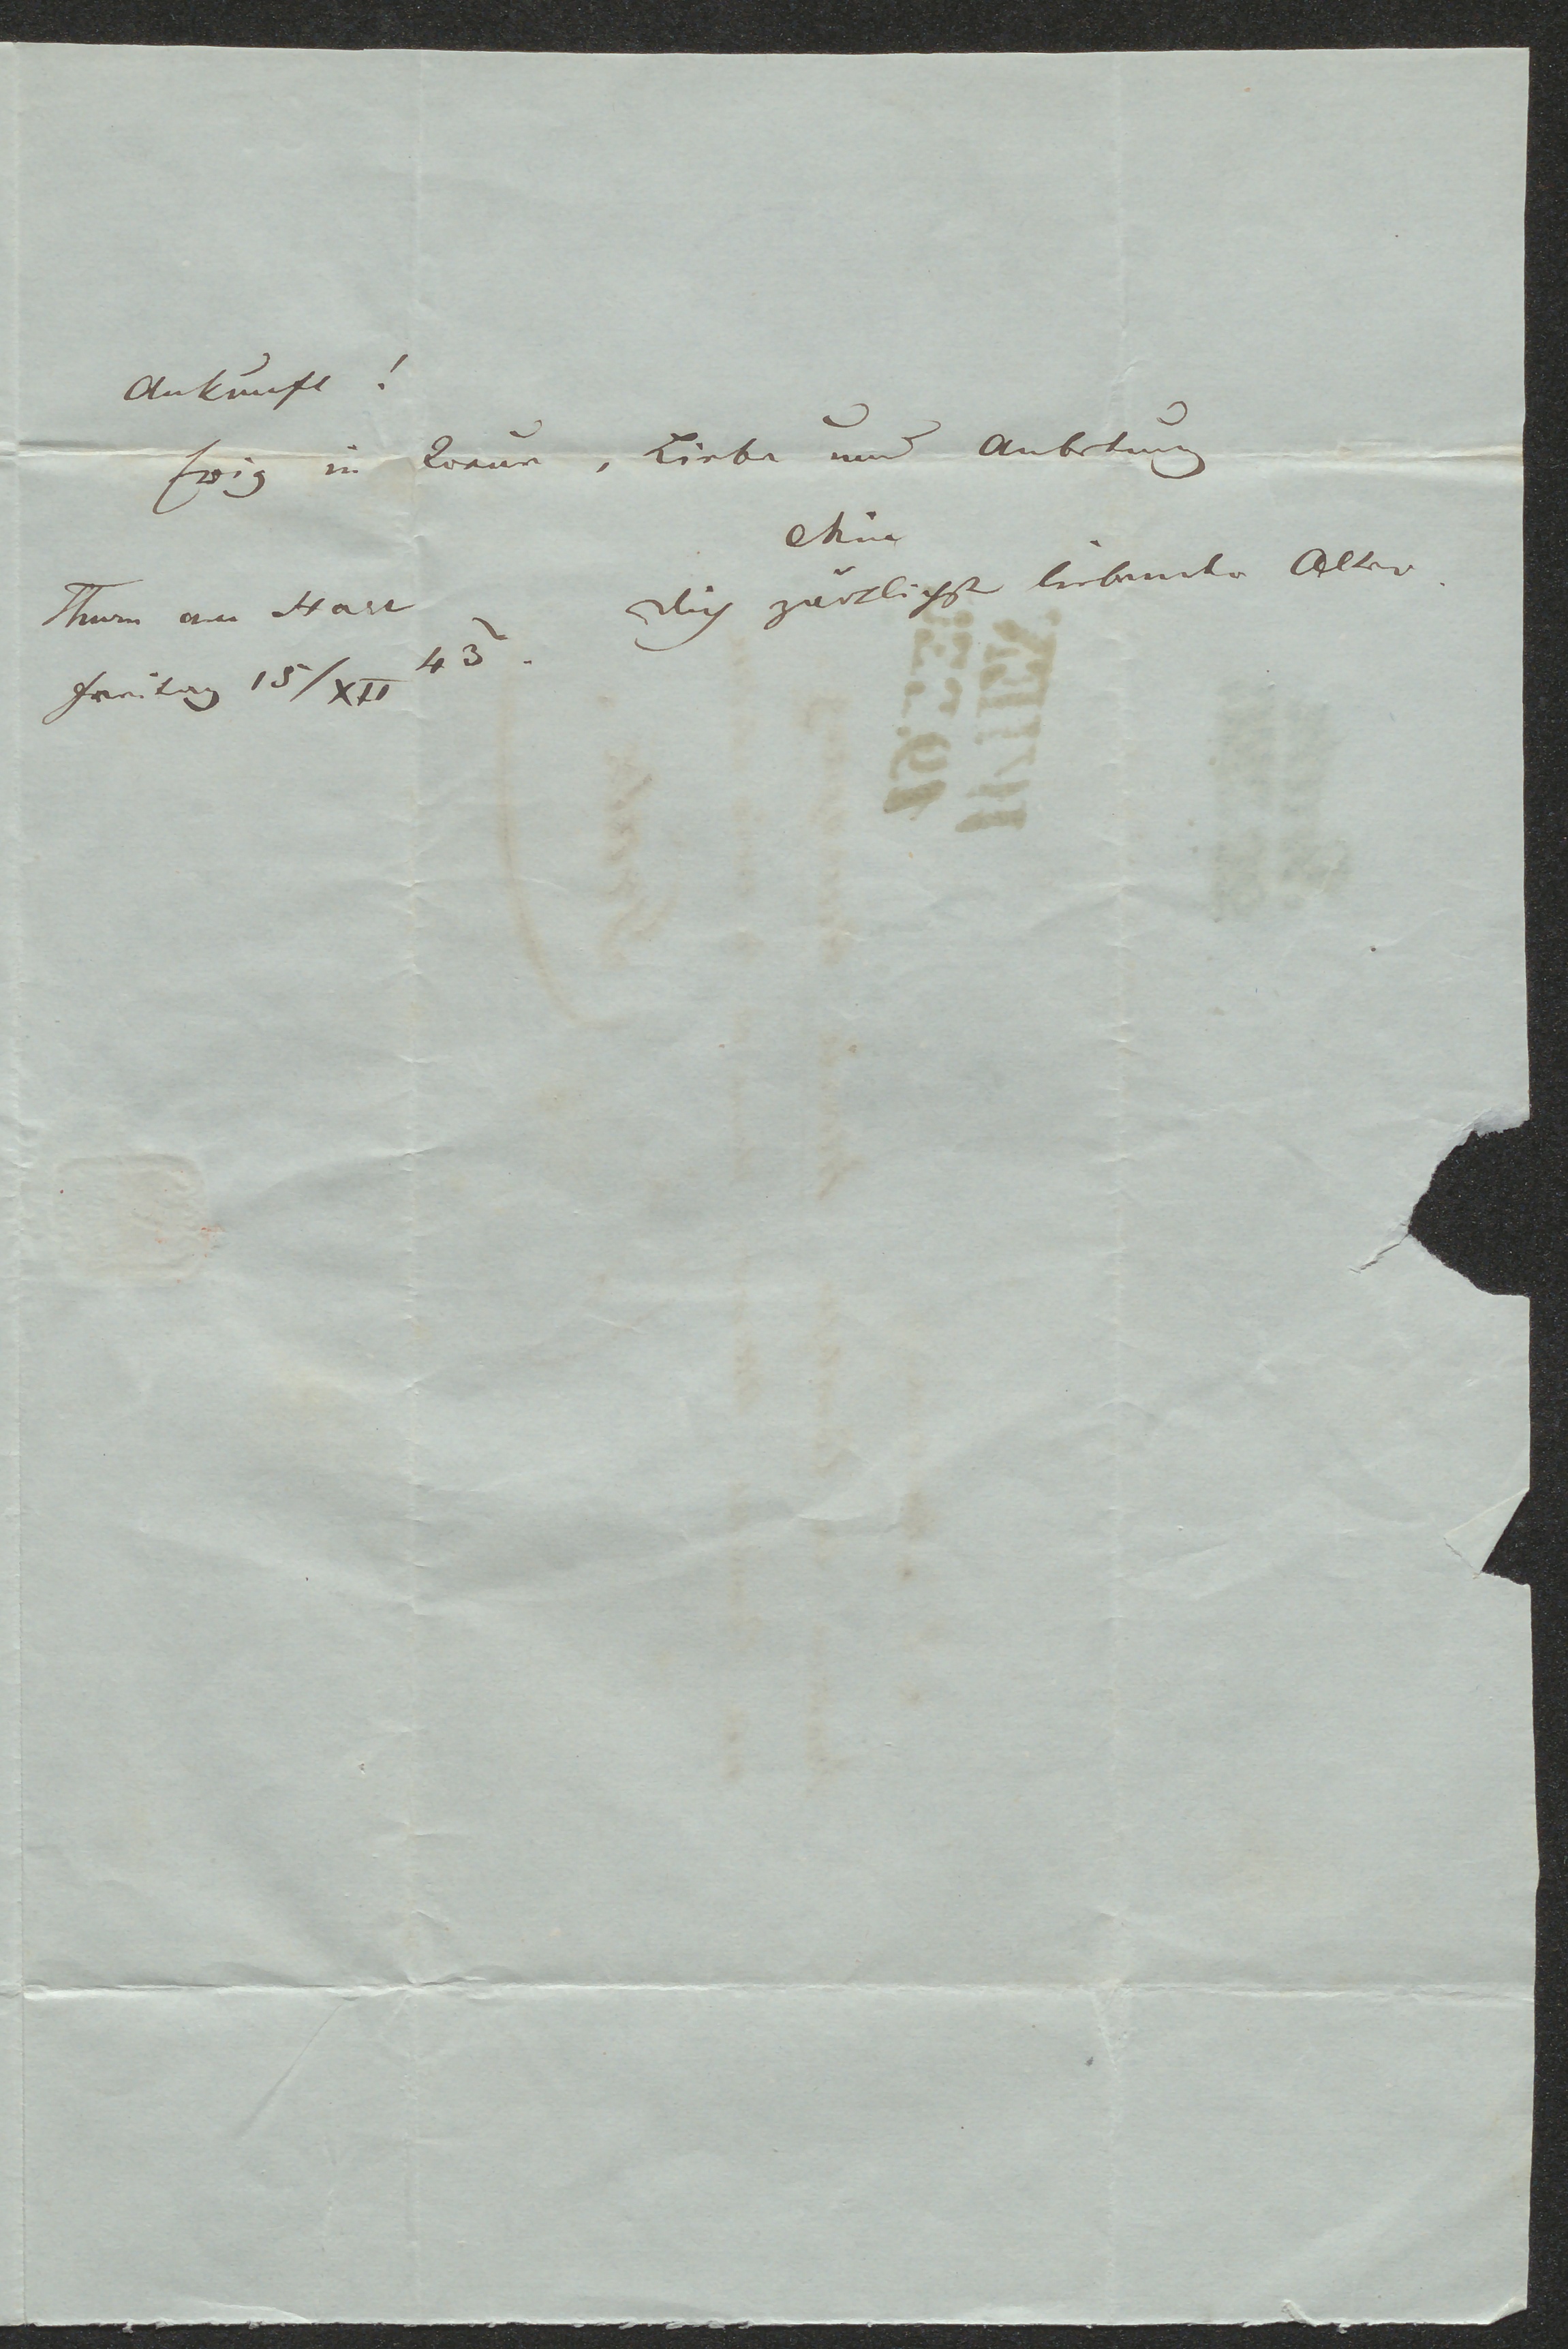 Ankunft!
Ewig in Treue, Liebe und Anbetung
Dein
Dich zärtlichst liebender Alter.
Thurn am Hart
Freitag 15/XII 43.